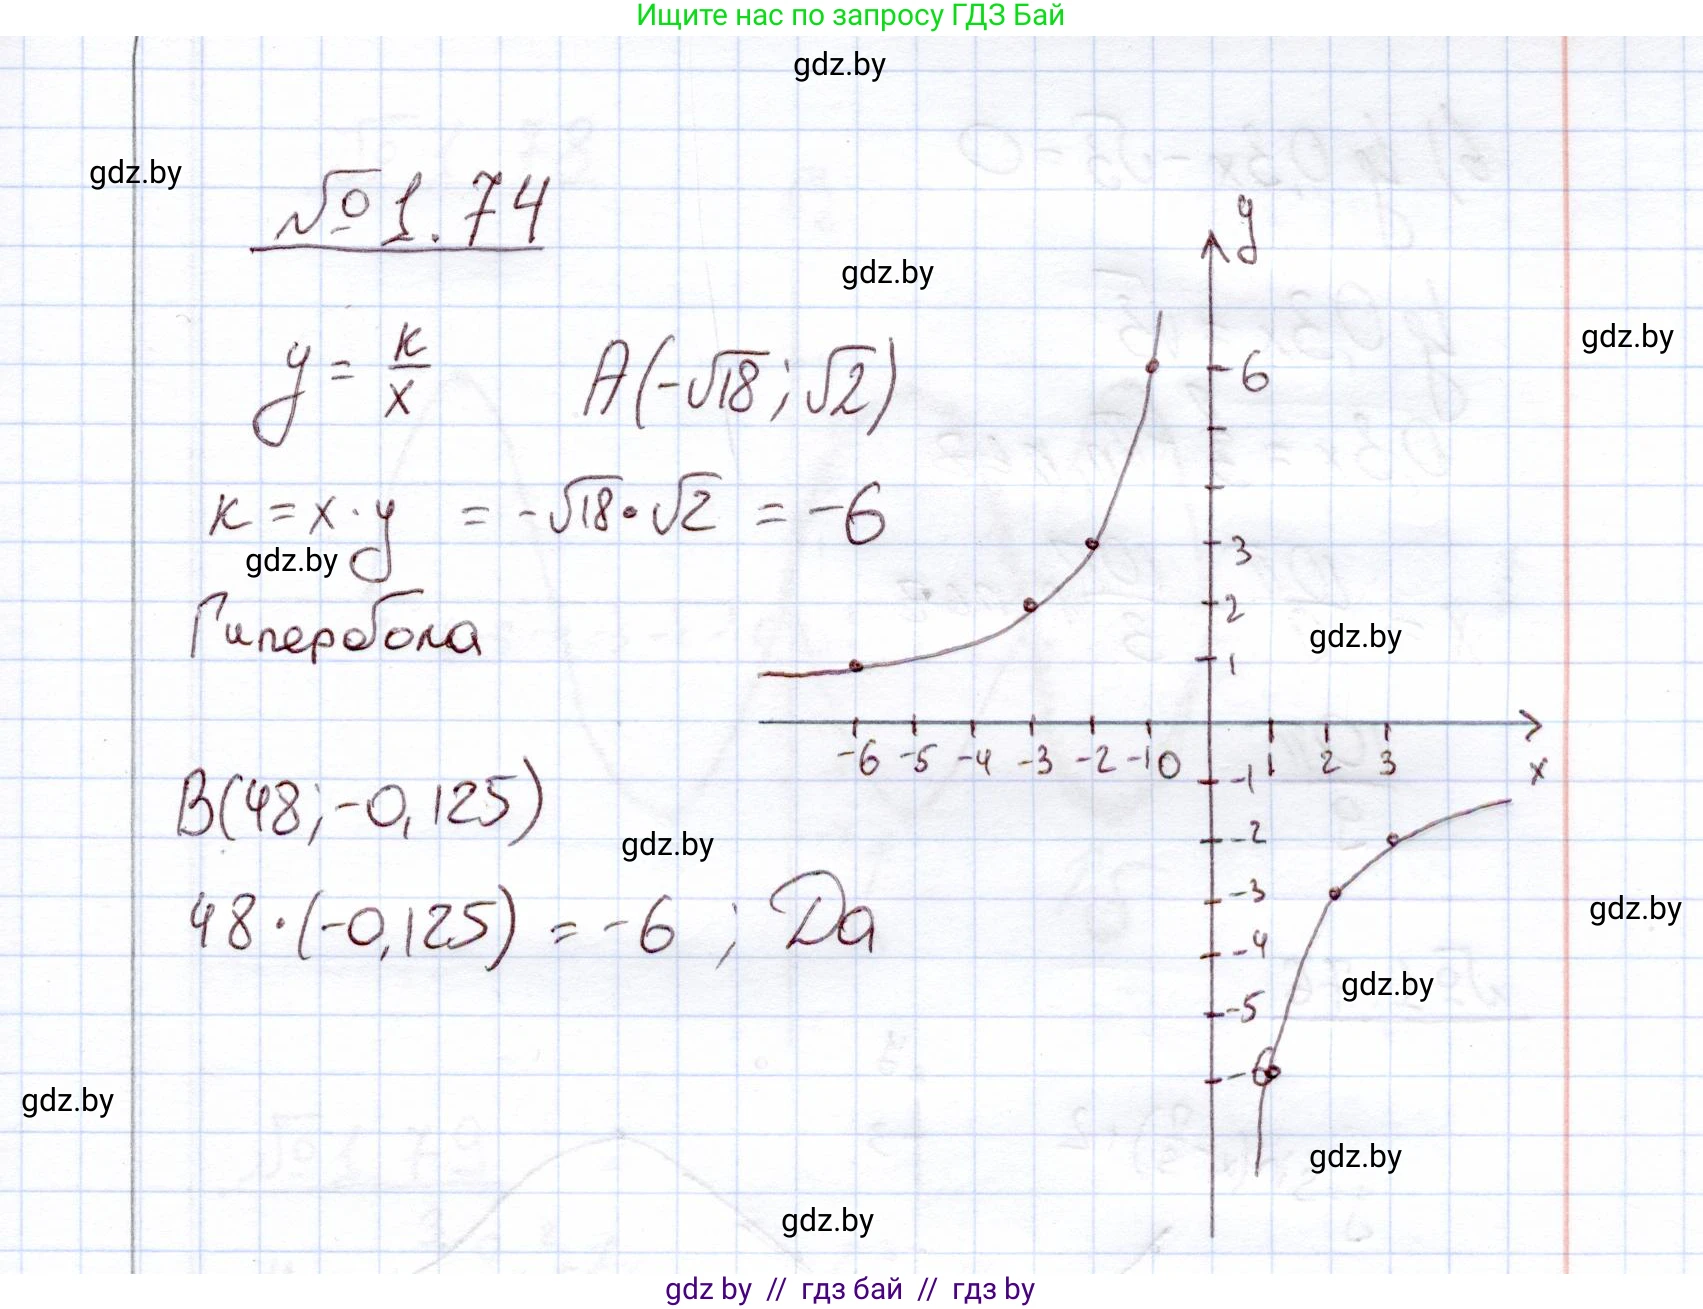 Ищите нас по запросу ГДЗ Бай
gdz.by
gdz.by
№ 1.74
gdz.by
gdz.by
y = к/x A(-√18; √2)
к = x · y = -√18 · √2 = -6
gdz.by
Гипербола
gdz.by
B(48; -0,125)
gdz.by
48 · (-0,125) = -6 ; Да
gdz.by
gdz.by
gdz.by
gdz.by
gdz.by
y
6
3
2
1
-6 -5 -4 -3 -2 -1 0 1 2 3 x
-1
-2
-3
-4
-5
-6
gdz by // гдз бай // гдз by